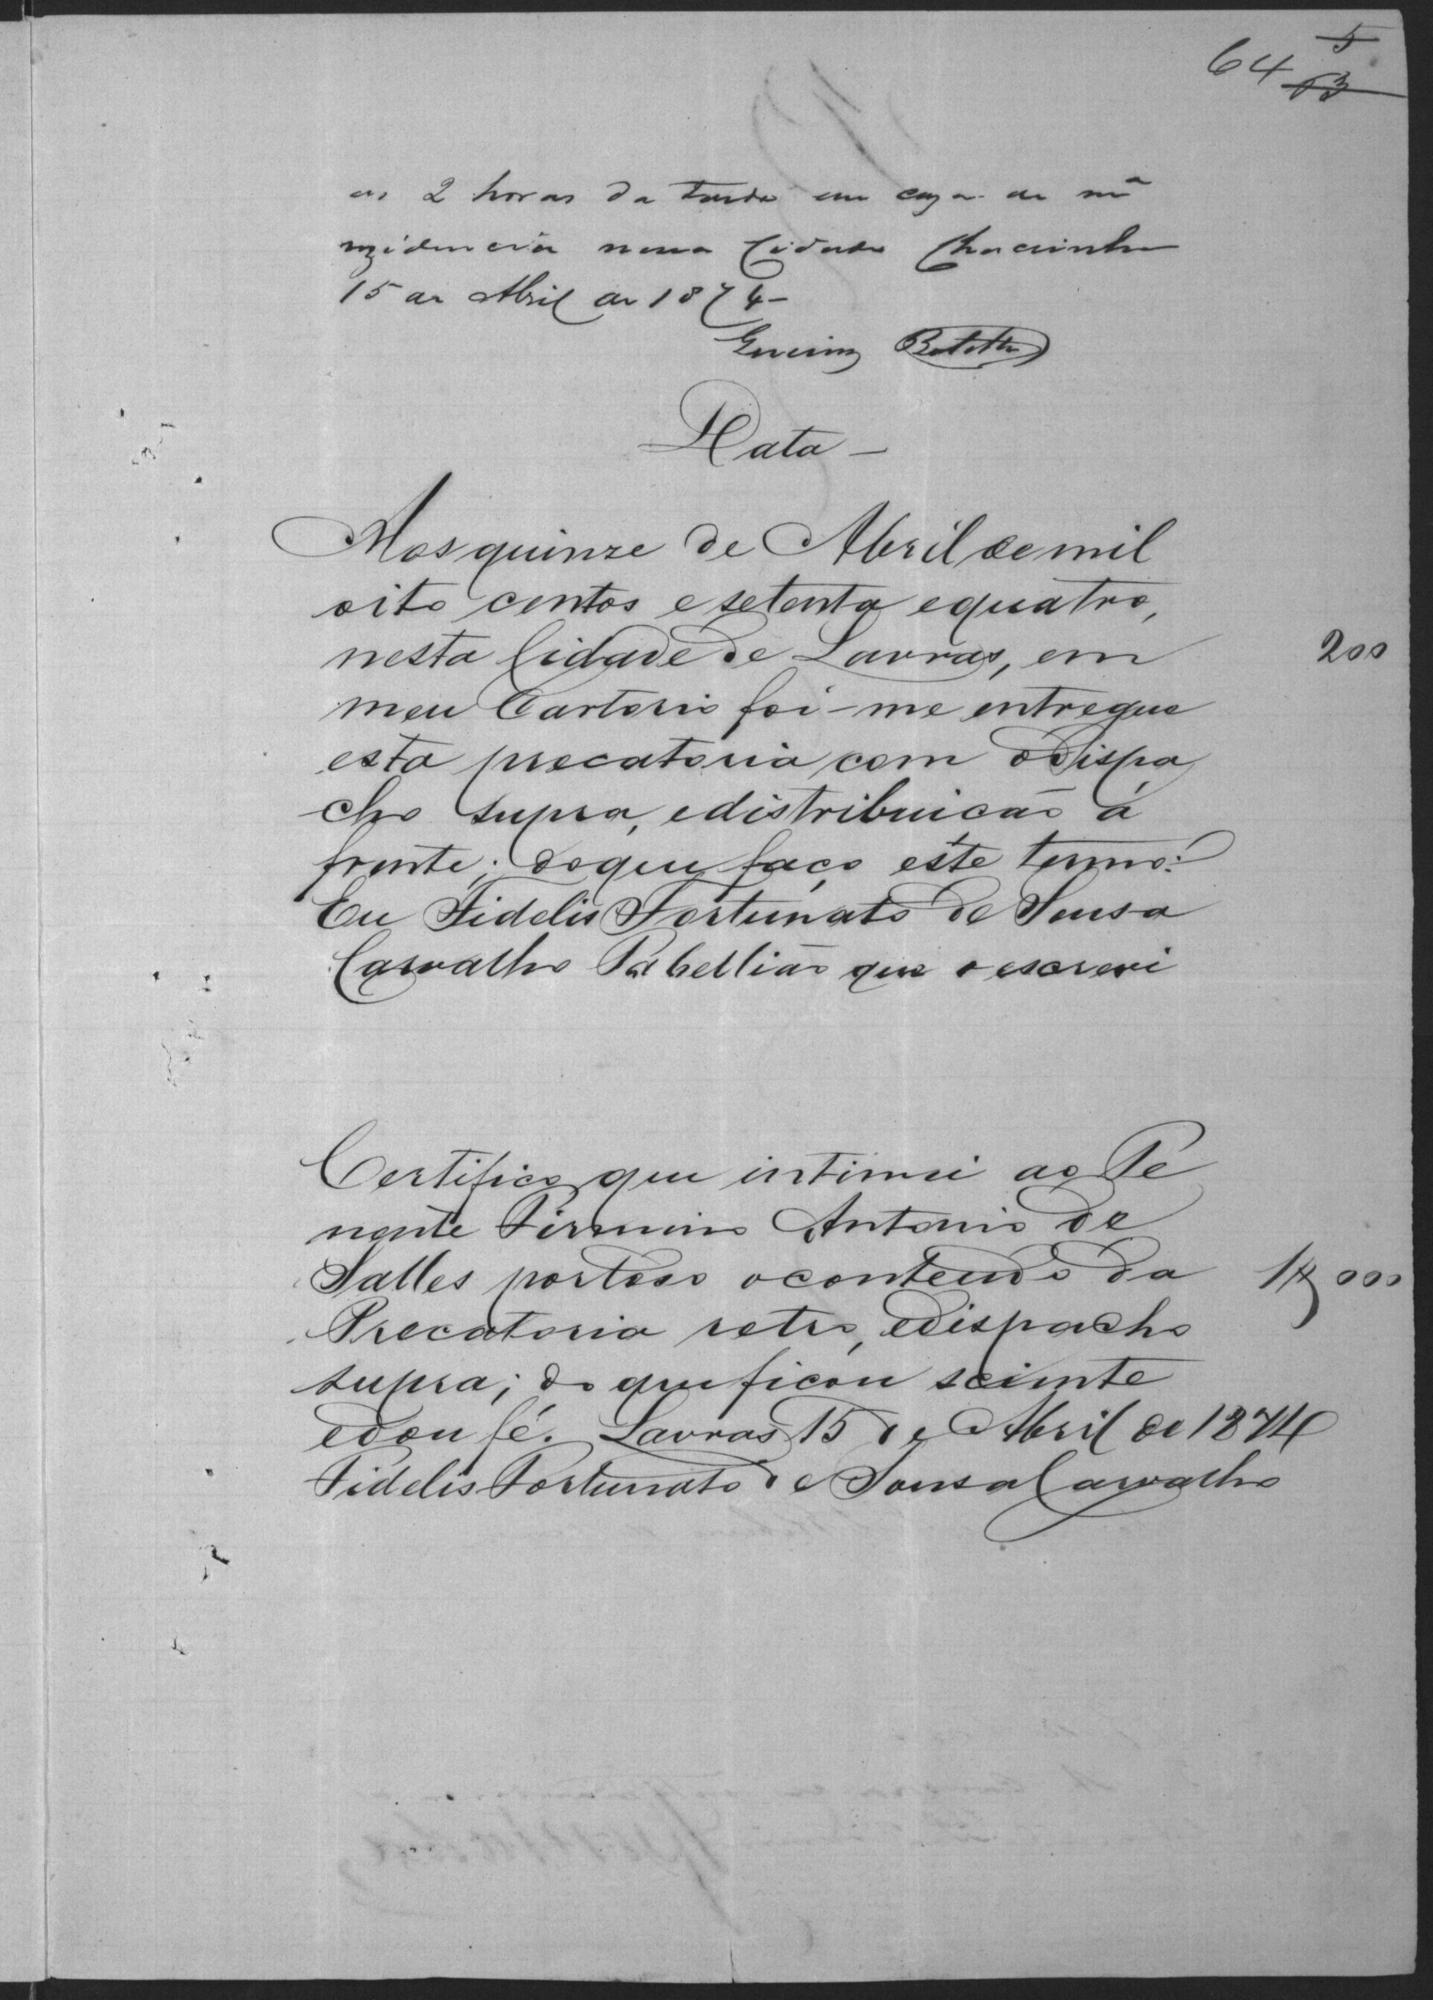 64 5
63
as 2 horas da tarde em caza de m.ª
rezidencia nessa Cidade Chacrinha
15 de Abril de 1874-
Botelho
Data -
Aos quinze de Abril de mil
oito centos e setenta e quatro,
nesta Cidade de Lavras, em 200
meu Cartorio foi-me entregue
esta precatoria com o dispa
cho supra, e distribuicão á
frente; do que faço este termo.
Eu Fidelis Fortunato de Sousa
Carvalho Tabellião que o escrevi
Certifico que intimei ao Te
nente Firmino Antonio de
Salles por todo o contendo da 1$000
Precatoria retro, e dispacho
supra; do que ficou sciente
e dou fé. Lavras 15 de Abril de 1874
Fidelis Fortunato de Sousa Carvalho